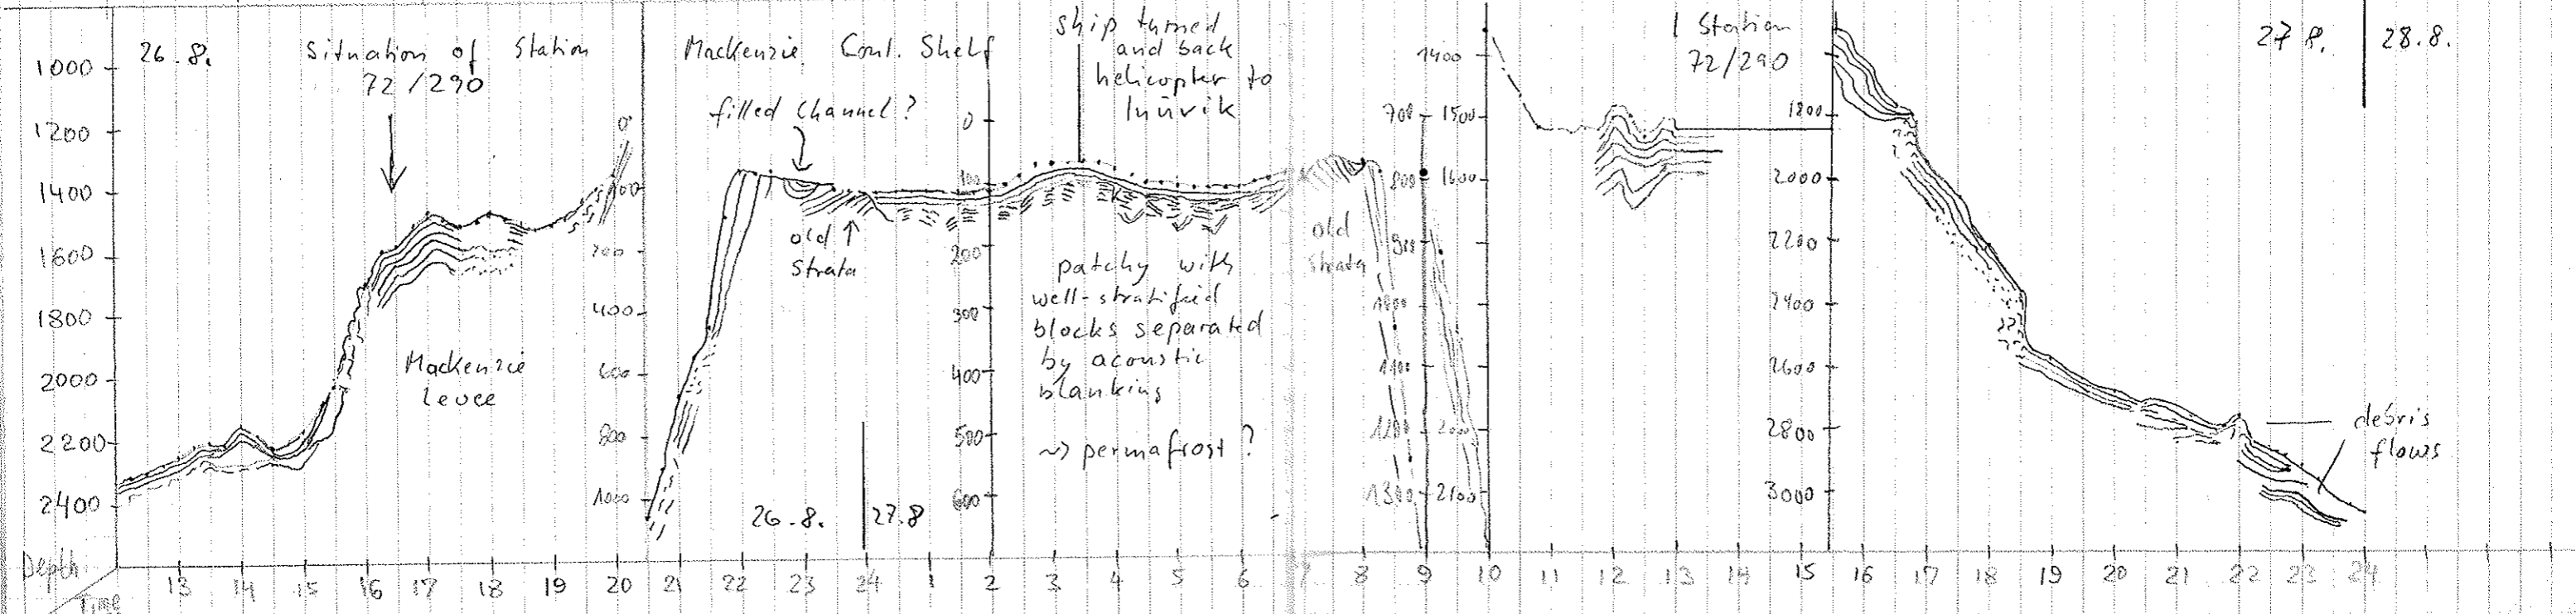 26.8.
Situation of Station
72/290
Mackenzie Cont. Shelf
filled Channel?
ship turned
and back
helicopter to
Inuvik
1 Station
72/290
27 8.
28.8.
1000
1200
1400
1600
1800
2000
2200
2400
Mackenzie
levee
0
200
400
600
800
1000
old
strata
26.8.
27.8
0
100
200
300
400
500
600
patchy with
well-stratified
blocks separated
by acoustic
blanking
~> permafrost?
old
strata
700
800
900
1000
1100
1200
1300
1400
1500
1600
2000
2100
1800
2000
2200
2400
2600
2800
3000
debris
flows
Depth
Time
13 14 15 16 17 18 19 20 21 22 23 24 1 2 3 4 5 6 7 8 9 10 11 12 13 14 15 16 17 18 19 20 21 22 23 24